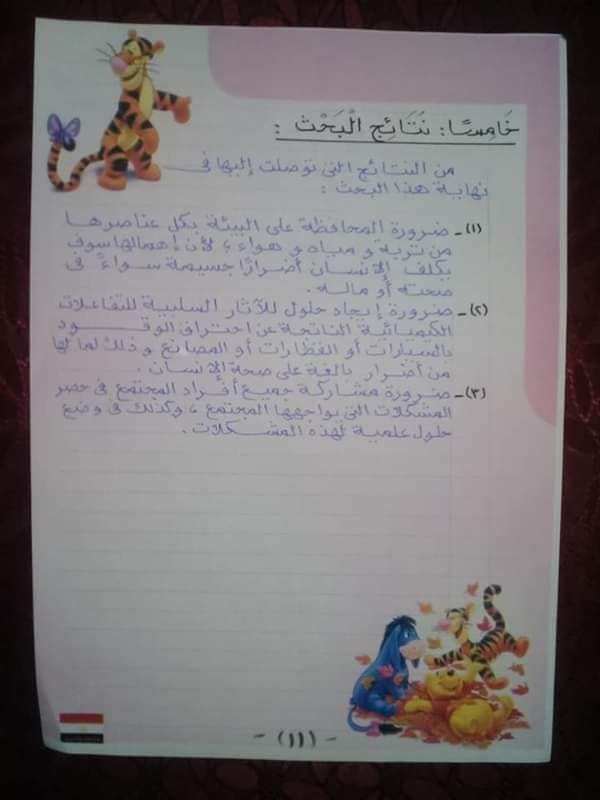 خَامِسًا: نَتَائِج الْبَحْث :
من النتائج التي توصلت إليها في
نهاية هذا البحث :
(١)ـ ضرورة المحافظة على البيئة بكل عناصرها
من تربة و مياه و هواء ؛ لأن إهمالها سوف
يكلف الإنسان أضرارًا جسيمة سواءً في
صحته أو ماله .
(٢)ـ ضرورة إيجاد حلول للآثار السلبية للتفاعلات
الكيميائية الناتجة عن احتراق الوقود
بالسيارات أو القطارات أو المصانع وذلك لما لها
من أضرار بالغة على صحة الإنسان .
(٣)ـ ضرورة مشاركة جميع أفراد المجتمع في حصر
المشكلات التي يواجهها المجتمع ، وكذلك في وضع
حلول علمية لهذه المشكلات .
- (١١) -